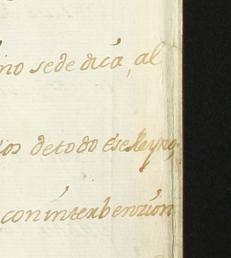 no se dedica, al
os de todo ese Reyno,
con interbención